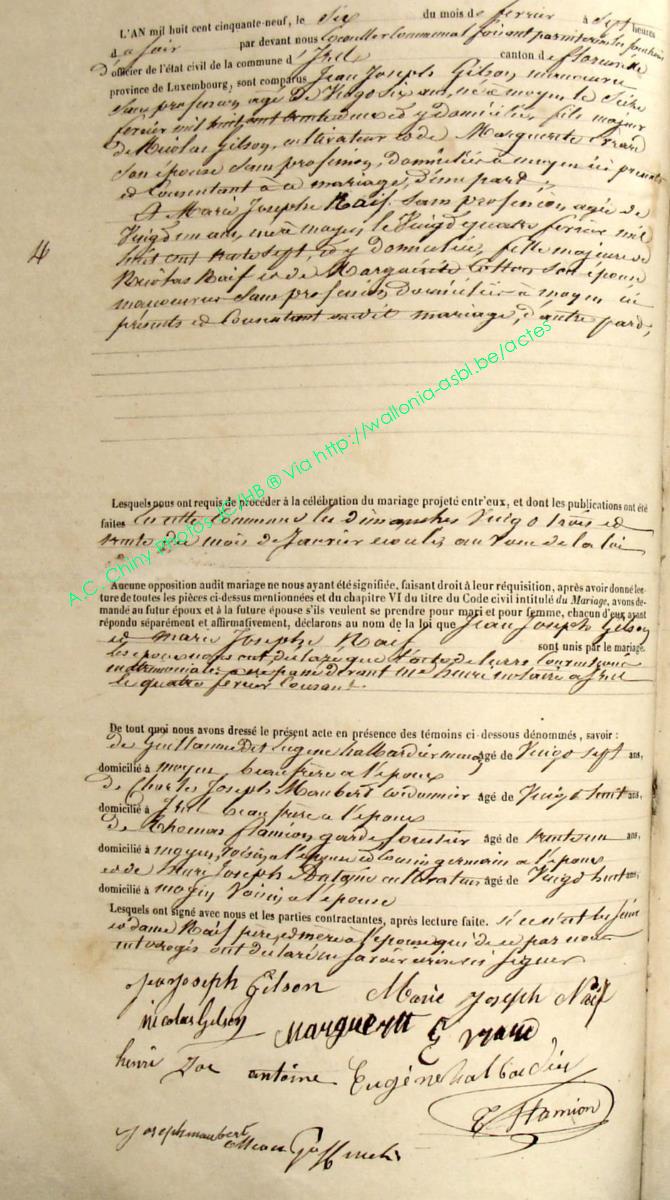 L'AN mil huit cent cinquante-neuf, le Six du mois de février à Sept heures
du soir par devant nous Conseiller Communal faisant par intérim les fonctions
d'officier de l'état civil de la commune d'Izel canton de florenville
province de Luxembourg, sont comparus Jean Joseph Gilson, manœuvre
sans profession, agé de Vingt six ans, né à moyen le Seize
février mil huit cent trente deux et y domicilié, fils majeur
de Nicolas Gilson, cultivateur et de Marguerite Evrard
son épouse sans profession, domiciliés à moyen ici présents
et Consentant à ce mariage, d'une part,
Et Marie Josephe Naif, sans profession, agée de
Vingt un ans, née à moyen, le Vingt quatre février mil
huit cent trente sept, et y domiciliée, fille majeure de
Nicolas Naif et de Marguerite Cotton son épouse
manœuvres sans profession, domiciliés à moyen ici
présents et Consentant audit mariage, d'autre part,
4
Lesquels nous ont requis de procéder à la célébration du mariage projeté entr'eux, et dont les publications ont été
faites en cette Commune les dimanches Vingt trois et
trente du mois de Janvier écoulé, au vœu de la loi
Aucune opposition audit mariage ne nous ayant été signifiée, faisant droit à leur réquisition, après avoir donné lec-
ture de toutes les pièces ci-dessus mentionnées et du chapitre VI du titre du Code civil intitulé du Mariage, avons de-
mandé au futur époux et à la future épouse s'ils veulent se prendre pour mari et pour femme, chacun d'eux ayant
répondu séparément et affirmativement, déclarons au nom de la loi que Jean Joseph Gilson
et Marie Josephe Naif sont unis par le mariage.
les époux nous ont déclaré que l'acte de leurs conventions
matrimoniales a été passé devant Me notaire à Izel
le quatre février Courant.
De tout quoi nous avons dressé le présent acte en présence des témoins ci-dessous dénommés, savoir :
de Guillaume dit Eugène halbardier âgé de Vingt sept ans,
domicilié à moyen beau frère à l'époux
de Charles Joseph Maubert cordonnier âgé de Vingt huit ans,
domicilié à Izel beau frère à l'époux
de Thomas Flamion garde forestier âgé de trente un ans,
domicilié à moyen, voisin à l'épouse et cousin germain à l'époux
et de Henri Joseph Antoine cultivateur âgé de Vingt huit ans,
domicilié à moyen Voisin à l'épouse
Lesquels ont signé avec nous et les parties contractantes, après lecture faite. si ce n'est les sieur
et dame Naif père et mère à l'épouse qui de ce par nous
interrogés ont déclaré ne savoir écrire ni signer
jean joseph Gilson Marie joseph Naif
nicolas Gilson Marguerite Evrard
henri Jos antoine Eugène halbardier
T Flamion
joseph maubert
A.C. Chiny Photos JC/HB ® Via http://wallonia-asbl.be/actes